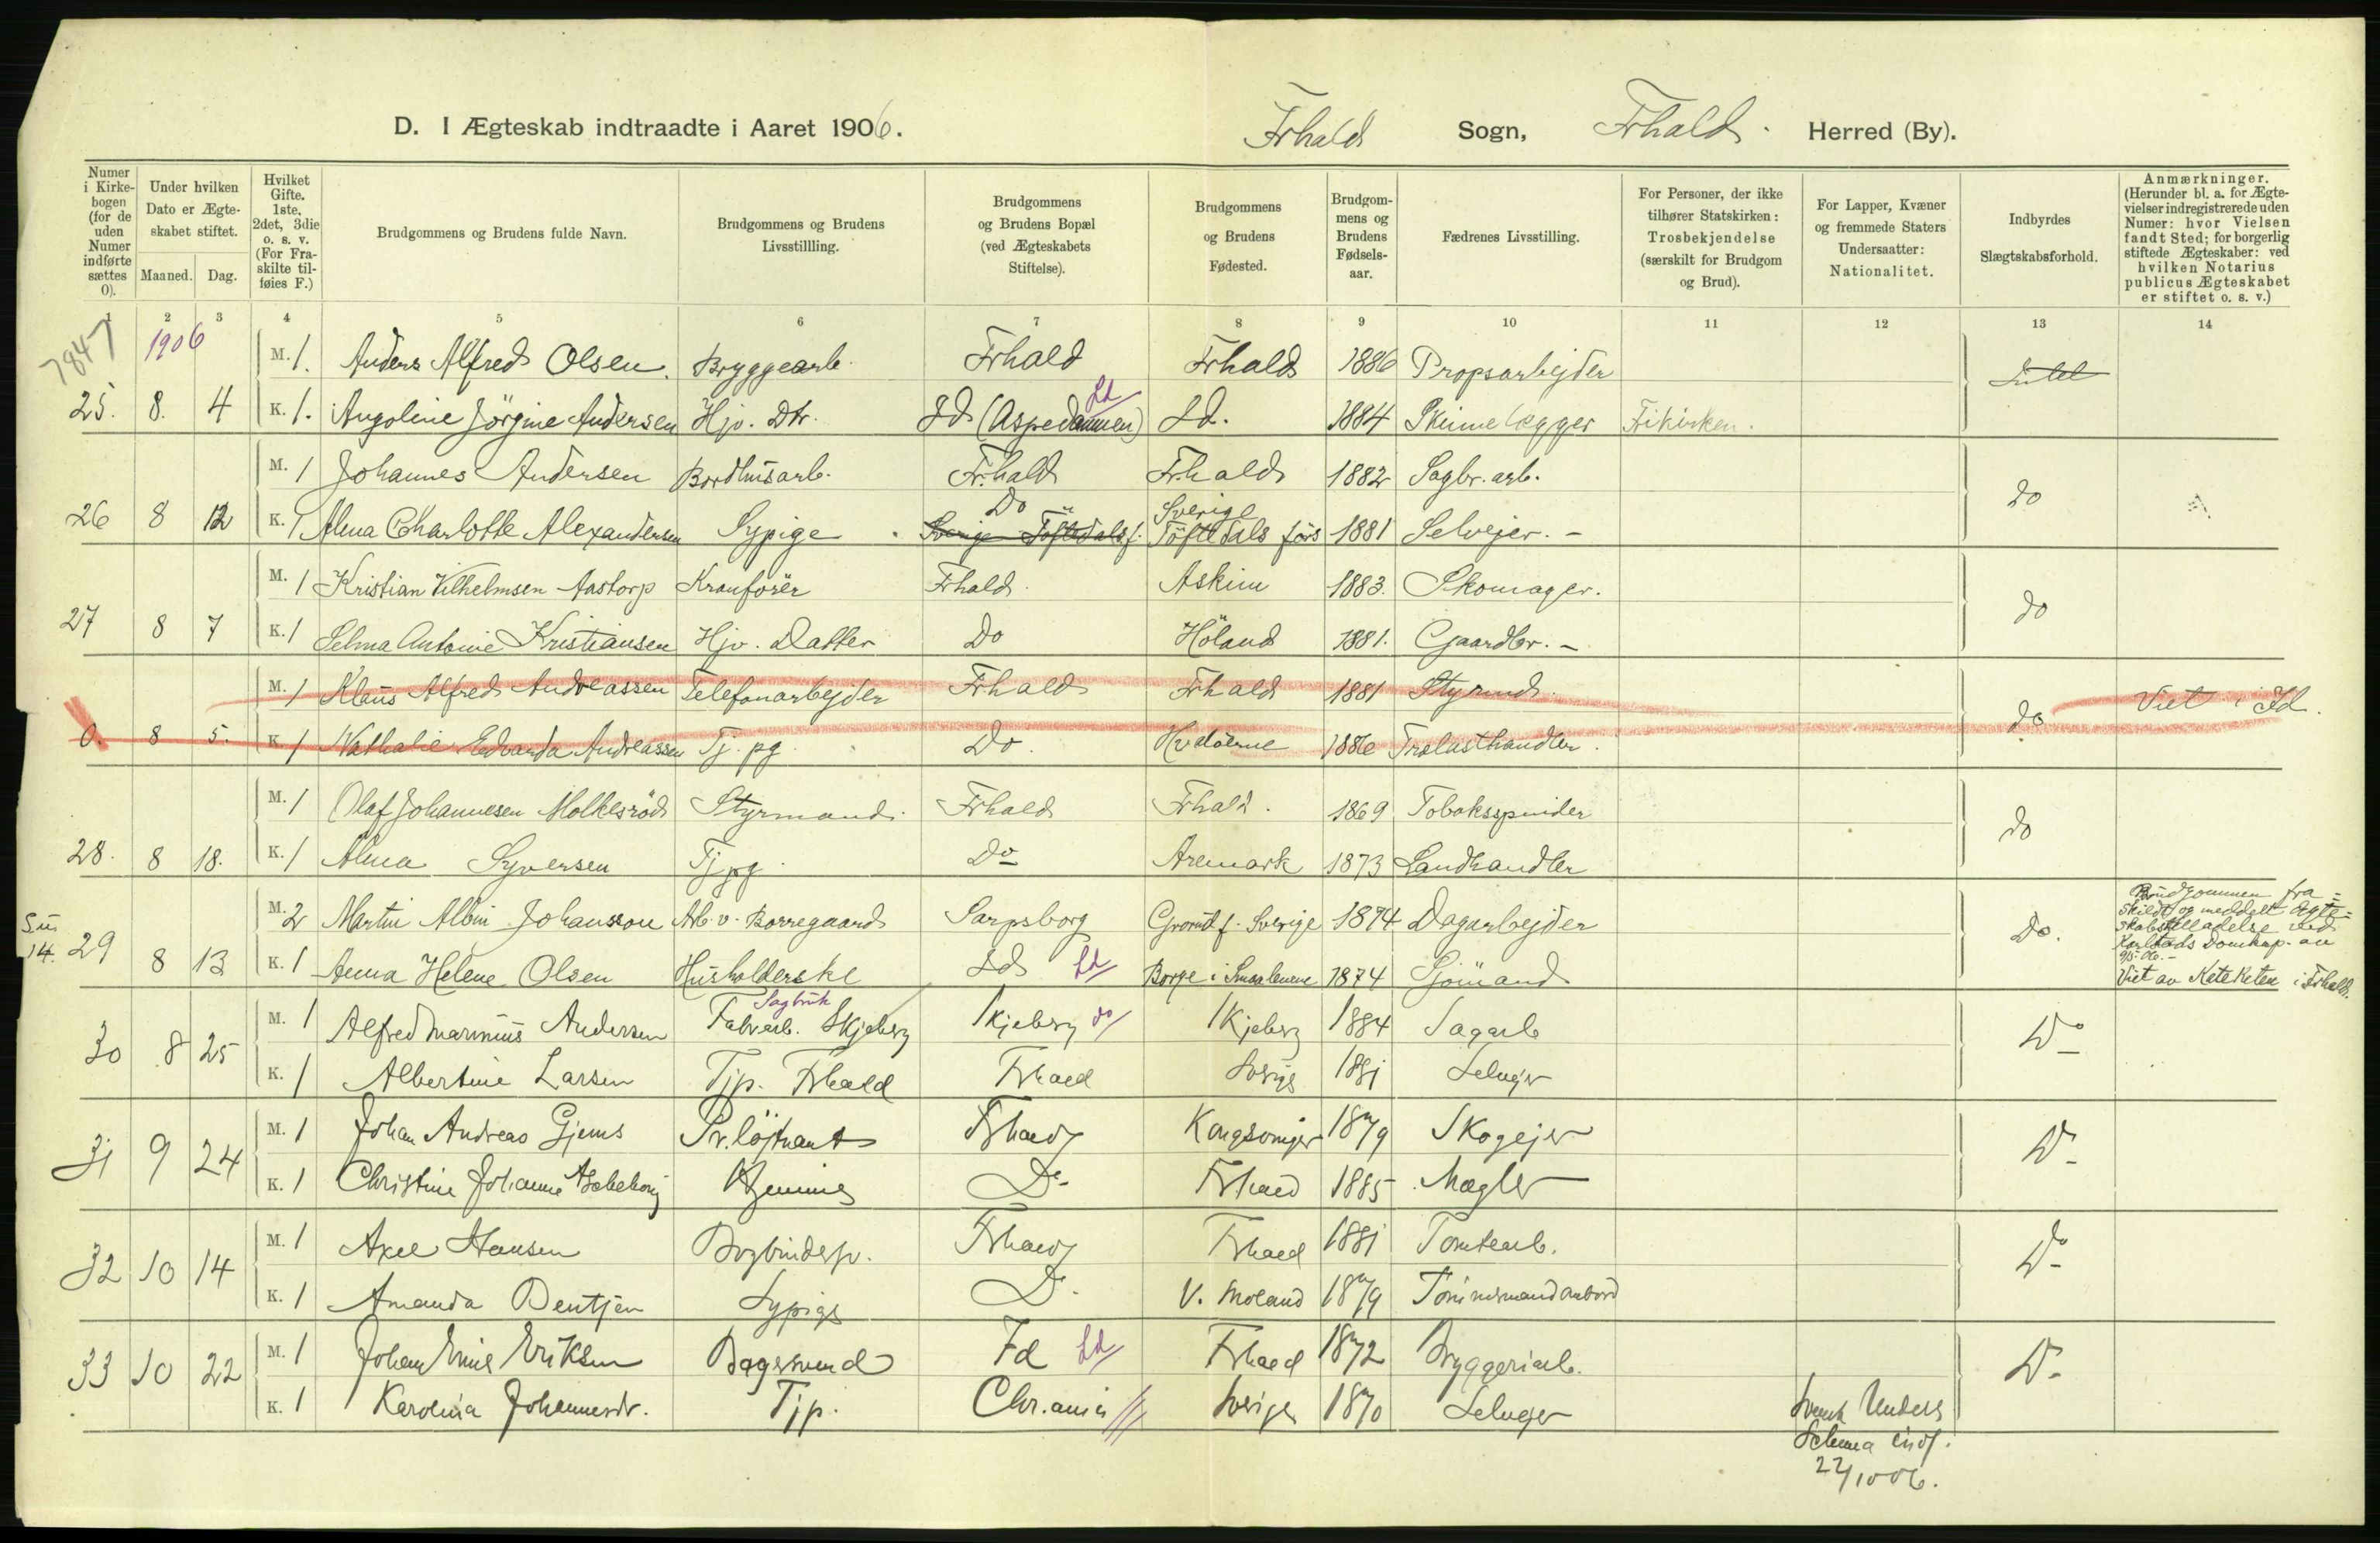 D. I Ægteskab indtraadte i Aaret 1906. Frhald Sogn, Frhald. Herred (By).
Numer i Kirkebogen (for de uden Numer indførte sættes 0).
Under hvilken Dato er Ægteskabet stiftet.
Maaned. Dag.
Hvilket Gifte. 1ste, 2det, 3die o. s. v. (For Fraskilte tilføies F.)
Brudgommens og Brudens fulde Navn.
Brudgommens og Brudens Livsstillling.
Brudgommens og Brudens Bopæl (ved Ægteskabets Stiftelse).
Brudgommens og Brudens Fødested.
Brudgommens og Brudens Fødselsaar.
Fædrenes Livsstilling.
For Personer, der ikke tilhører Statskirken: Trosbekjendelse (særskilt for Brudgom og Brud).
For Lapper, Kvæner og fremmede Staters Undersaatter: Nationalitet.
Indbyrdes Slægtskabsforhold.
Anmærkninger. (Herunder bl. a. for Ægtevielser indregistrerede uden Numer: hvor Vielsen fandt Sted; for borgerlig stiftede Ægteskaber: ved hvilken Notarius publicus Ægteskabet er stiftet o. s. v.)
1 2 3 4 5 6 7 8 9 10 11 12 13 14
7847 1906
M. 1. Anders Alfred Olsen. Bryggearb. Frhald Frhald 1886 Propsarbejder Intet
25. 8. 4 K. 1. Angoline Jörgine Andersen Hjv. Dtr. Id (Aspedammen) Id Id. 1884 Skinnelægger Frikirken.
M. 1 Johannes Andersen Bordhusarb. Fr.hald Fr.hald 1882 Sagbr. arb. do
26 8 12 K. 1 Alma Charlotte Alexandersen Sypige Do Sverige Töftedals f. Sverige Töftedals førs 1881 Selvejer. -
M. 1 Kristian Vilhelmsen Aastorp Kranförer Frhald. Askim 1883. Skomager. do
27 8 7 K. 1 Selma Antonie Kristiansen Hjv. Datter Do Höland 1881. Gaardbr. -
M. 1 Klaus Alfred Andreassen Telefonarbejder Frhald Frhald 1881 Styrmd. do Viet i Id.
0. 8 5. K. 1 Nathalie Edvarda Andreassen Tj. pg. Do. Hvaløerne 1886 Trælasthandler.
M. 1 Olaf Johannesen Molkesröd Styrmand. Frhald Frhald. 1869 Tobaksspinder do
28. 8 18. K. 1 Alma Syversen Tj pg. Do Aremark 1873 Landhandler
M. 2 Martin Albin Johansson Arb. v. Borregaard Sarpsborg 1874 Dagarbejder Do.
Brudgommen fra-
skildt og meddelt Ægte-
skabstilladelse ved
Karlstads Domkap. av
Viet av Kateketen i Frhald.
29 8 13 K. 1 Anna Helene Olsen Husholderske Id Id Borge i Smaalenene 1874 Sjömand
Sagbruk
M. 1 Alfred Marinius Andersen Fabrarb. Skjeberg Skjeberg do Skjeberg 1884 Sagarb Do
30 8 25 K. 1 Albertine Larsen Tjp. Frhald Frhald Sverige 1881 Selvejer
M. 1 Johan Andreas Gjems Pr.löjtnant Frhald Kongsvinger 1879 Skogejer Do
31 9 24 K. 1 Christine Johanne Hjemme Do Frhald 1885 Mægler
M. 1 Axel Hansen Bogbindersv. Frhald Frhald 1881 Tomtearb. Do
32 10 14 K. 1 Amanda Bentsen Sypige Do. V. Moland 1879 Tömmermand ombord
M. 1 Johan Emil Eriksen Bagersvend Id Id Frhald 1872 Bryggeriarb. Do
33 10 22 K. 1 Karolina Johannesdr. Tjp. Chr.ania Sverige 1870 Selvejer Svensk Unders
Schema inds.
22/10 06.